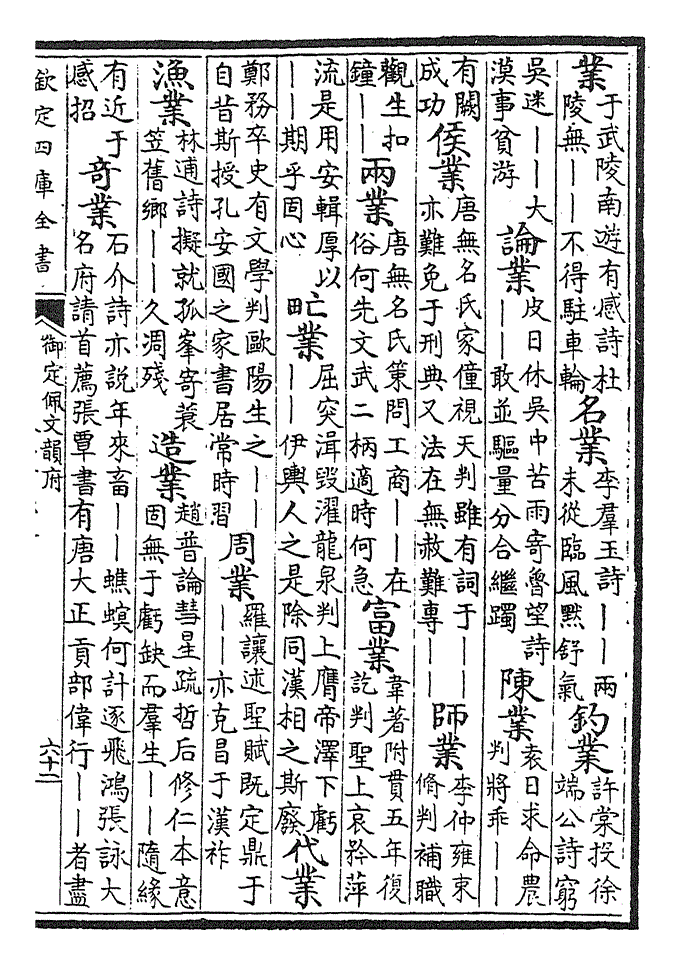 業
于武陵南遊有感詩杜
陵無——不得駐車輪
名業
李羣玉詩——兩
未從臨風黙舒氣
釣業
許棠投徐
端公詩窮
吳迷——大
漠事貧游
論業
皮日休吳中苦雨寄魯望詩
——敢並驅量分合繼躅
陳業
袁日求命農
判將乖——
有闕
成功
侯業
唐無名氏家僮視天判雖有詞于——
亦難免于刑典又法在無赦難專——
師業
李仲雍東
脩判補職
觀生扣
鐘——
兩業
唐無名氏策問工商——在
俗何先文武二柄適時何急
富業
韋著附貫五年復
訖判聖上哀矜萍
流是用安輯厚以
——期乎固心
甿業
屈突淯毀濯龍泉判上膺帝澤下虧
——伊輿人之是除同漢相之斯廢
代業
鄭務卒史有文學判歐陽生之——
自昔斯授孔安國之家書居常時習
周業
羅讓述聖賦既定鼎于
——亦克昌于漢祚
漁業
林逋詩擬就孤峯寄蓑
笠舊鄉——久凋殘
造業
趙普論彗星疏哲后修仁本意
固無于虧缺而羣生——隨緣
有近于
感招
奇業
石介詩亦說年來畜——蟭螟何計逐飛鴻張詠大
名府請首薦張覃書有唐大正貢部偉行——者盡
欽定四庫全書
御定佩文韻府
六十二